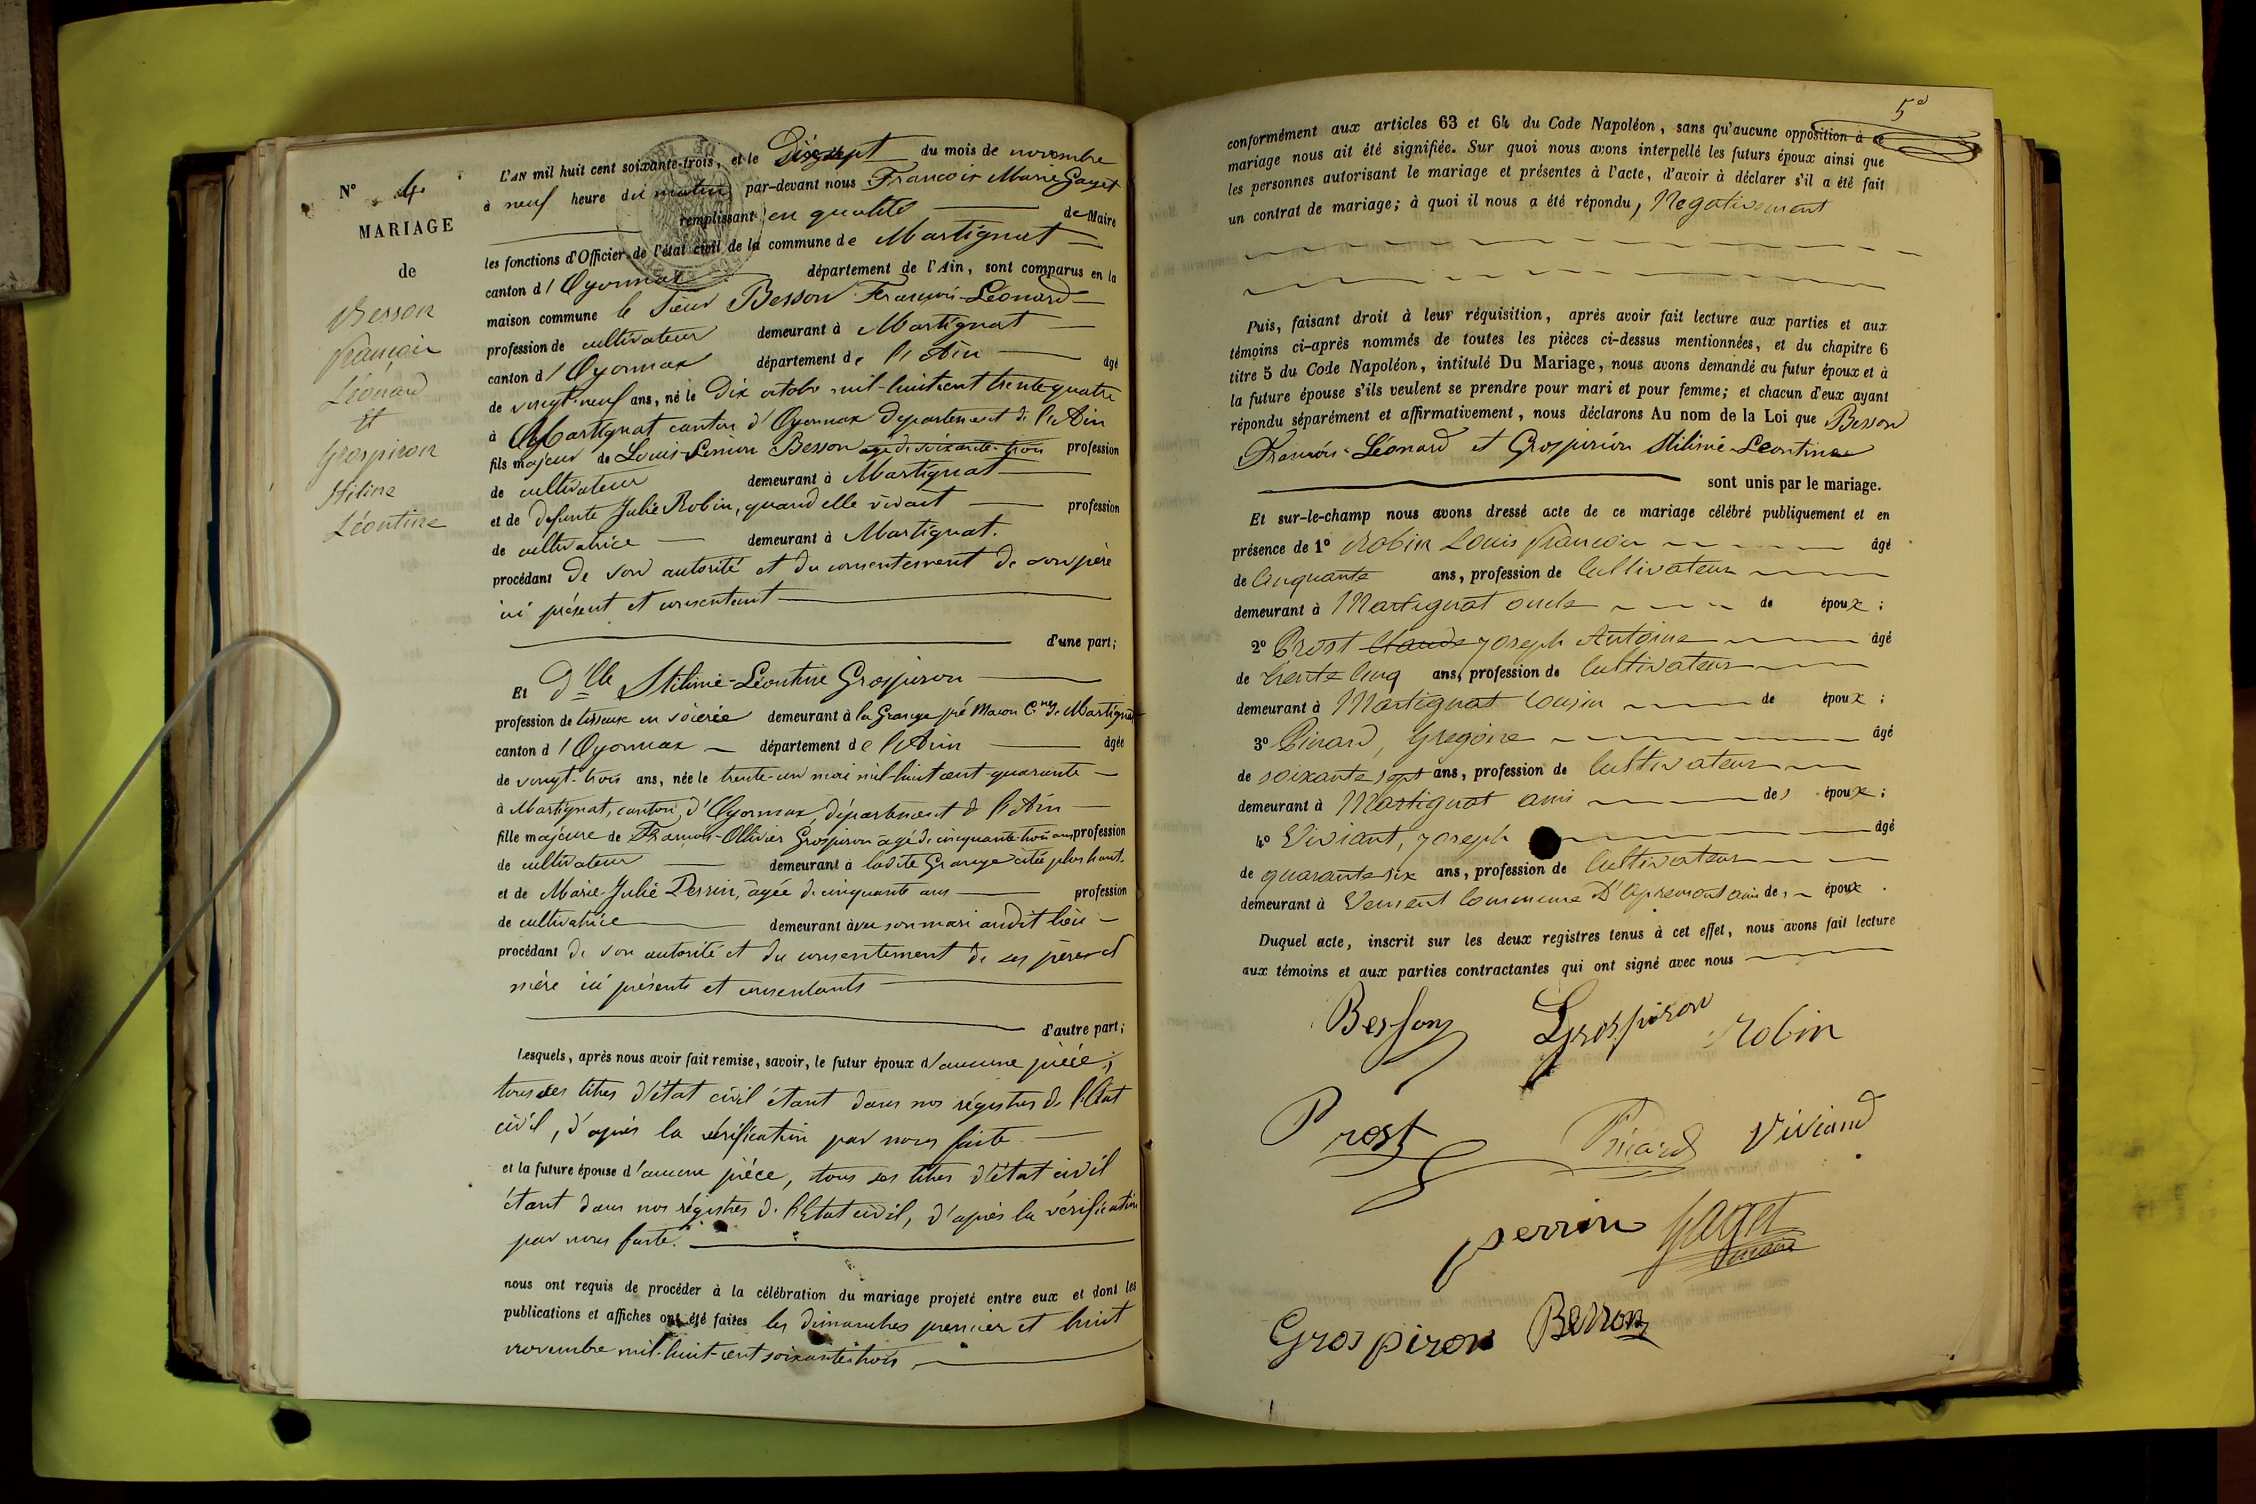 N° 4
MARIAGE
de
Besson
François
Léonard
et
Grospiron
Stiline
Léontine
L'AN mil huit cent soixante-trois, et le Dix sept du mois de novembre
à neuf heure du matin par-devant nous François Marie Gaget
remplissant en qualité de Maire
les fonctions d'Officier de l'état civil de la commune de Martignat
canton d'Oyonnax département de l'Ain, sont comparus en la
maison commune le Sieur Besson François-Léonard
profession de cultivateur demeurant à Martignat
canton d'Oyonnax département de l'Ain âgé
de vingt-neuf ans, né le Dix octobre mil-huit-cent trente quatre
à Martignat canton d'Oyonnax département de l'Ain
fils majeur de Louis-Simon Besson agé de soixante-trois profession
de cultivateur demeurant à Martignat
et de defunte Julie Robin, quand elle vivait profession
de cultivatrice demeurant à Martignat.
procédant de son autorité et du consentement de son père
ici présent et consentant
d'une part;
Et Dlle Stilinie-Léontine Grospiron
profession de tisseuse en soierie demeurant à la Grange pré Macon Cne de Martignat
canton d'Oyonnax département de l'Ain âgée
de vingt-trois ans, née le trente-un mai mil-huit cent-quarante
à Martignat, canton d'Oyonnax, département de l'Ain
fille majeure de François-Ollivier Grospiron agé de cinquante-trois ans profession
de cultivateur demeurant à ladite Grange citée plus haut.
et de Marie-Julie Perrin, âgée de cinquante ans profession
de cultivatrice demeurant à vec son mari audit lieu
procédant de son autorité et du consentement de ses père et
mère ici présents et consentants
d'autre part;
Lesquels, après nous avoir fait remise, savoir, le futur époux d'aucune pièce,
tous ses titres d'état civil étant dans nos régistres de l'Etat
civil, d'après la vérification par nous faite
et la future épouse d'aucune pièce, tous ses titres d'état civil
étant dans nos régistres de l'Etat civil, d'après la vérification
par nous faite.
nous ont requis de procéder à la célébration du mariage projeté entre eux et dont les
publications et affiches ont été faites les dimanches premier et huit
novembre mil-huit-cent soixante trois
5e
conformément aux articles 63 et 64 du Code Napoléon, sans qu'aucune opposition à ce
mariage nous ait été signifiée. Sur quoi nous avons interpellé les futurs époux ainsi que
les personnes autorisant le mariage et présentes à l'acte, d'avoir à déclarer s'il a été fait
un contrat de mariage; à quoi il nous a été répondu, Negativement
Puis, faisant droit à leur réquisition, après avoir fait lecture aux parties et aux
témoins ci-après nommés de toutes les pièces ci-dessus mentionnées, et du chapitre 6
titre 5 du Code Napoléon, intitulé Du Mariage, nous avons demandé au futur époux et à
la future épouse s'ils veulent se prendre pour mari et pour femme; et chacun d'eux ayant
répondu séparément et affirmativement, nous déclarons Au nom de la Loi que Besson
François-Léonard et Grospiron Stilinie-Léontine
sont unis par le mariage.
Et sur-le-champ nous avons dressé acte de ce mariage célébré publiquement et en
présence de 1° Robin Louis François âgé
de Cinquante ans, profession de Cultivateur
demeurant à Martignat oncle de époux;
2° Prost Claude joseph Antoine âgé
de trente cinq ans, profession de Cultivateur
demeurant à Martignat Cousin de époux;
3° Picard, Gregoire âgé
de soixante sept ans, profession de Cultivateur
demeurant à Martignat ami des époux;
4° Viviant, joseph âgé
de quarante six ans, profession de Cultivateur
demeurant à Commune D'Apremont ami de époux.
Duquel acte, inscrit sur les deux registres tenus à cet effet, nous avons fait lecture
aux témoins et aux parties contractantes qui ont signé avec nous
Besson Grospiron Robin
Prost Picard Viviand
perrin Gaget
maire
Grospiron Besson